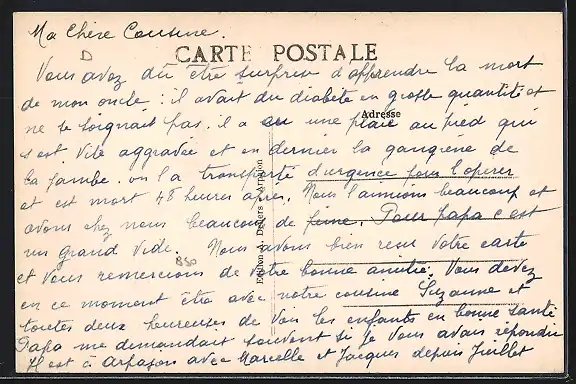 Ma Chère Cousine.
D
CARTE POSTALE
Vous avez dû être surprise d'apprendre la mort
de mon oncle : il avait du diabète en grosse quantité et
ne se soignait pas. il a eu une plaie au pied qui
Adresse
s'est vite aggravée et en dernier la gangrène de
la jambe. on l'a transporté d'urgence pour l'opérer
et est mort 48 heures après. Nous l'aimions beaucoup et
avons chez nous beaucoup de peine. Pour papa c'est
un grand vide. Nous avons bien reçu votre carte
et vous remercions de votre bonne amitié. Vous devez
en ce moment être avec notre cousine Suzanne et
toutes deux heureuses de vous les enfants en bonne santé
Papa me demandait souvent si je vous avais répondu
Il est à Arpajon avec Marcelle et Jacques depuis Juillet
Arpajon